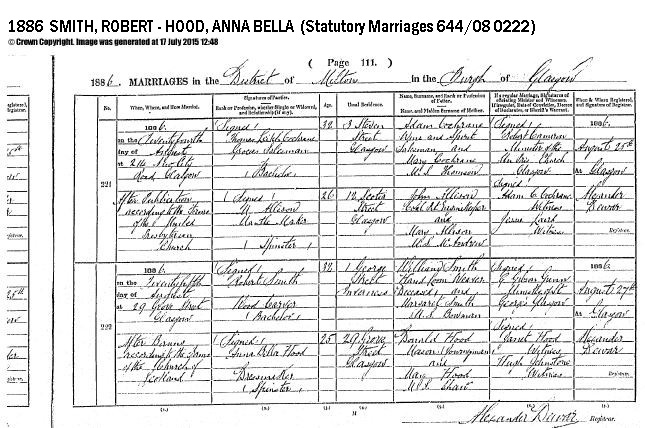 1886 SMITH, ROBERT - HOOD, ANNA BELLA (Statutory Marriages 644/08 0222)
© Crown Copyright. Image was generated at 17 July 2015 12:48
( Page 111. )
1886. MARRIAGES in the District of Milton in the Burgh of Glasgow
No.
When, Where, and How Married.
Signatures of Parties.
Rank or Profession, whether Single or Widowed, and Relationship (if any).
Age.
Usual Residence.
Name, Surname, and Rank or Profession of Father.
Name, and Maiden Surname of Mother.
If a regular Marriage, Signatures of officiating Minister and Witnesses.
If irregular, Date of Conviction, Decree of Declarator, or Sheriff's Warrant.
When & Where Registered, and Signature of Registrar.
221
1886.
on the Twentyfourth
day of August
at 214 New City
Road Glasgow
After Publication
according to the Forms
of the United
Presbyterian
Church
(Signed)
Cochrane
Grocer
(Bachelor)
(Signed)
M. Allison
Mantle Maker
(Spinster)
32
26
3
Street
Glasgow
12 Scotia
Street
Glasgow
Adam Cochrane
Wine and Spirit
Salesman and
Mary Cochrane
M.S. Thomson
John Allison
and
Mary Allison
M.S. McAndrew
Signed
Robert Cameron
Minister of the
Church
Glasgow
Signed
Adam C Cochrane
Witness
Laird
Witness
1886.
August 25th
At Glasgow
Alexander
Dewar
Registrar.
222
1886.
on the Twentyfifth
day of August
at 29 Grove Street
Glasgow
After Banns
according to the Forms
of the Church of
Scotland
(Signed)
Robert Smith
Wood Carver
(Bachelor)
(Signed)
Anna Bella Hood
Dressmaker
(Spinster)
32
25
1 George
Street
Inverness
29 Grove
Street
Glasgow
William Smith
Hand loom Weaver
Deceased and
Margaret Smith
M.S. Bowman
Donald Hood
Mason (Journeyman)
and
Mary Hood
M.S. Shaw
Signed
Gunn
Minister of St
George's Glasgow
Signed
Janet Hood
Witness
Hugh Johnstone
Witness
1886.
August 27th
At Glasgow
Alexander
Dewar
Registrar.
Alexander Dewar Registrar.